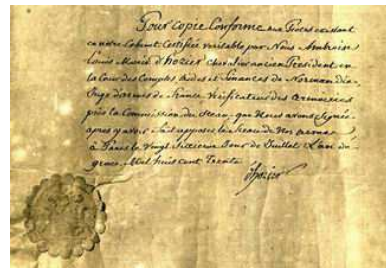 Pour Copie Conforme aux Titres existant
en notre Cabinet Certifiée véritable par Nous Ambroise
Louis Marie d'hozier chevalier ancien Président en
la Cour des Comptes, aides et finances de Normandie
Juge d'armes de france Vérificateur des armoiries
près la Commission du Sceau que Nous avons Signée
après y avoir fait apposer le Sceau de Nos armes
à Paris le Vingt Sixieme Jour de Juillet L'an de
grace Mil huit cent Trente
d'hozier